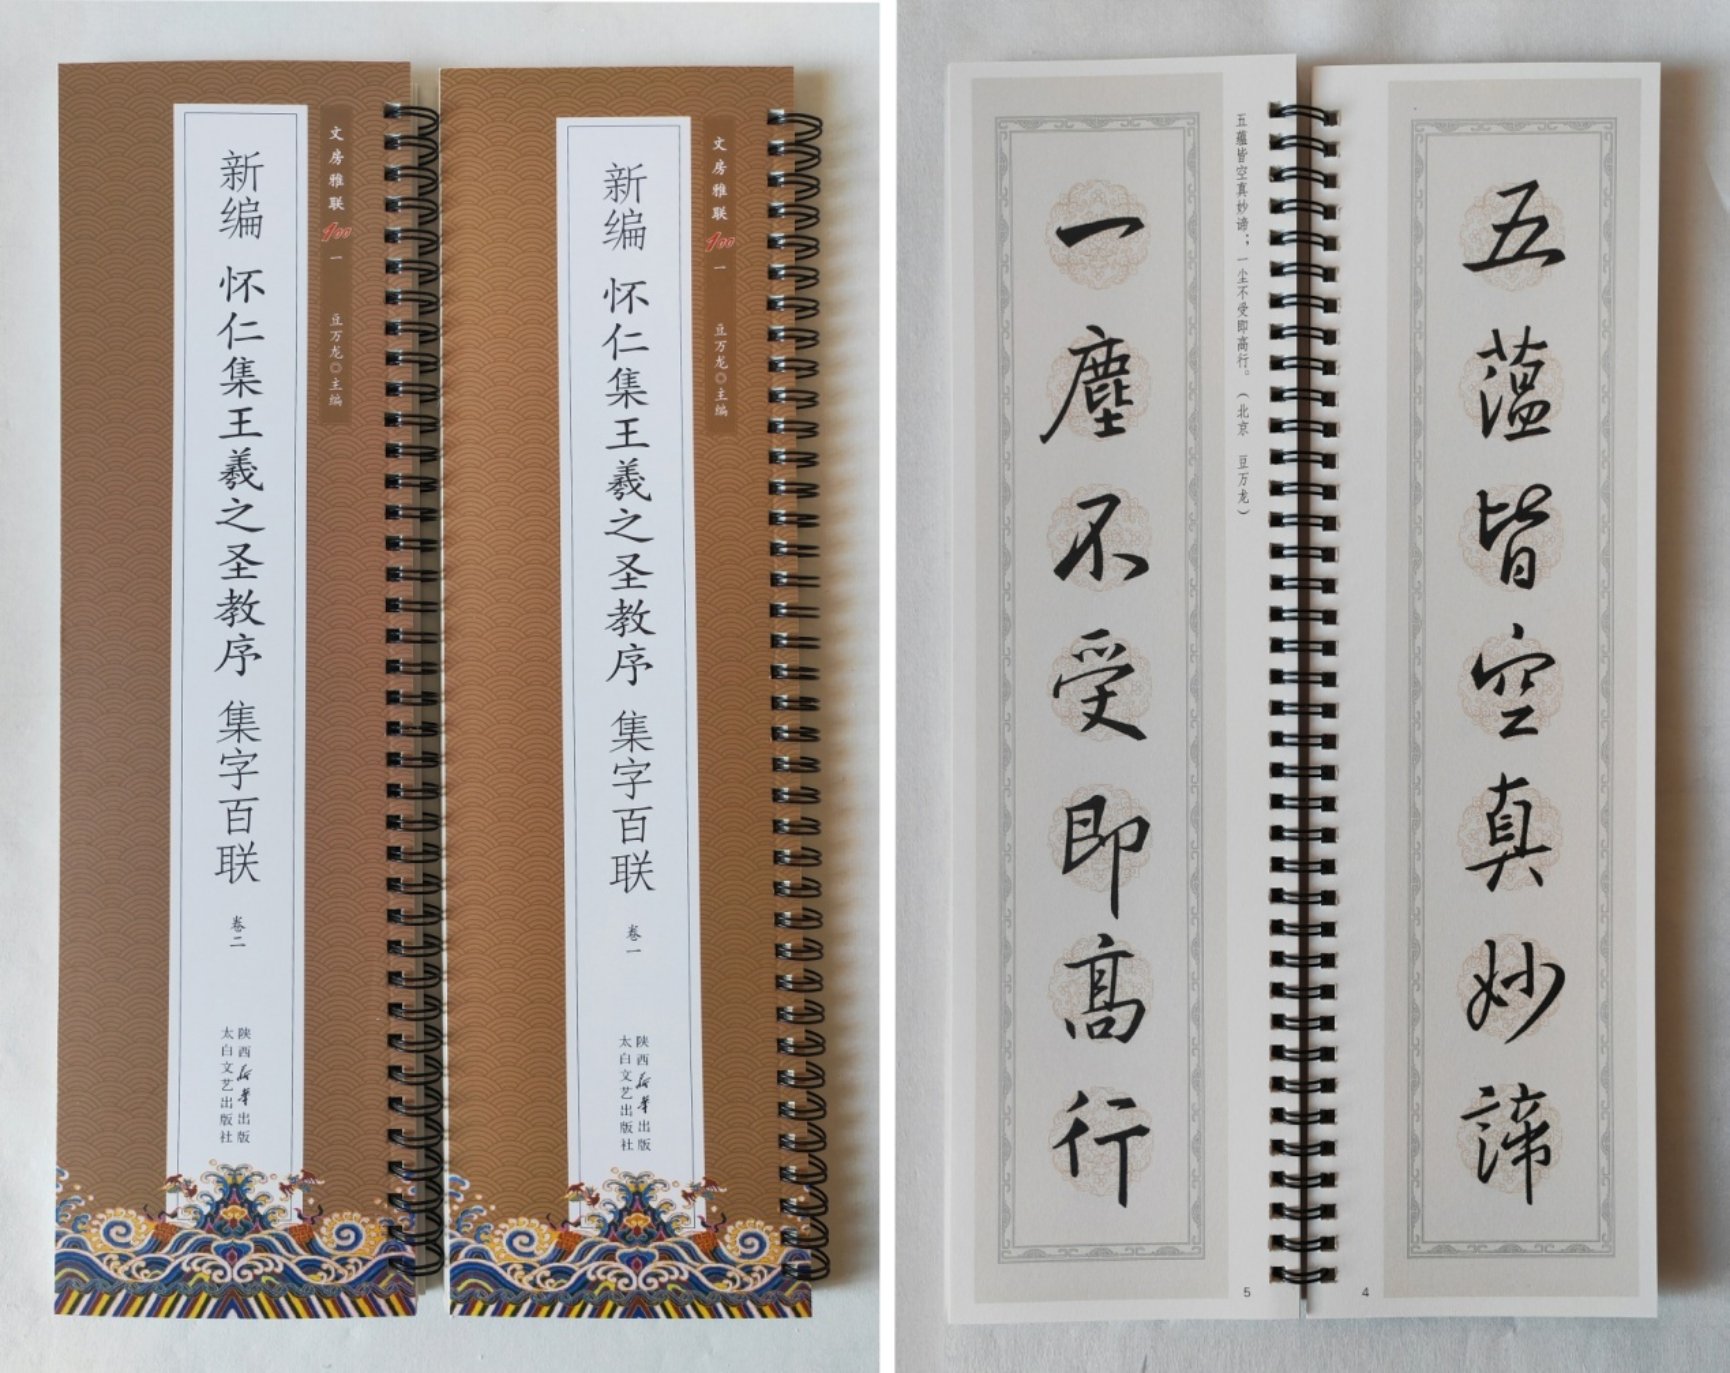 文房雅联400 一 豆万龙◎主编
新编 怀仁集王羲之圣教序 集字百联 卷二
陕西新华出版
太白文艺出版社
文房雅联400 一 豆万龙◎主编
新编 怀仁集王羲之圣教序 集字百联 卷一
陕西新华出版
太白文艺出版社
五蕴皆空真妙谛
4
五蕴皆空真妙谛；一尘不受即高行。（北京 豆万龙）
一塵不受即高行
5